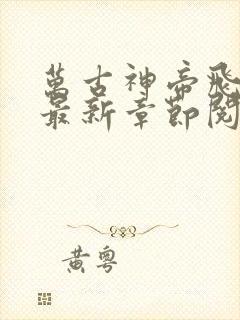 萬古神帝飛
最新章節閱
黃粵